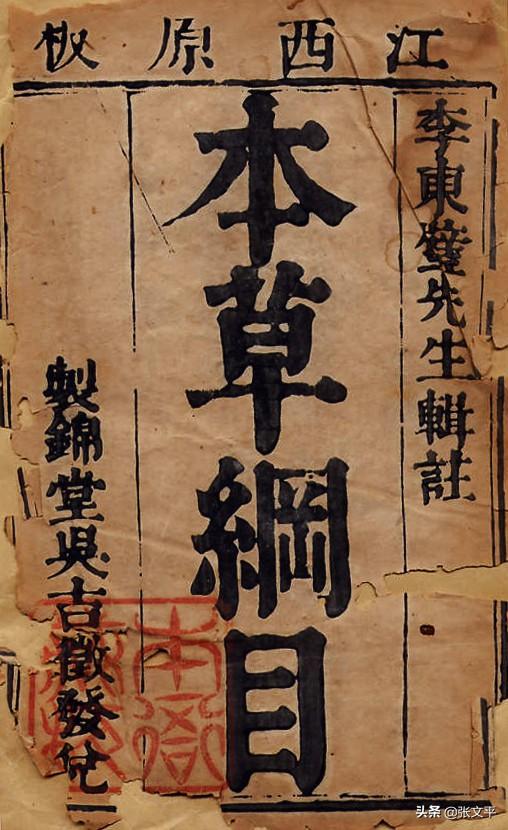 江西原板
李東璧先生輯註
本草綱目
製錦堂吳吉徵發兌
头条 @张文平